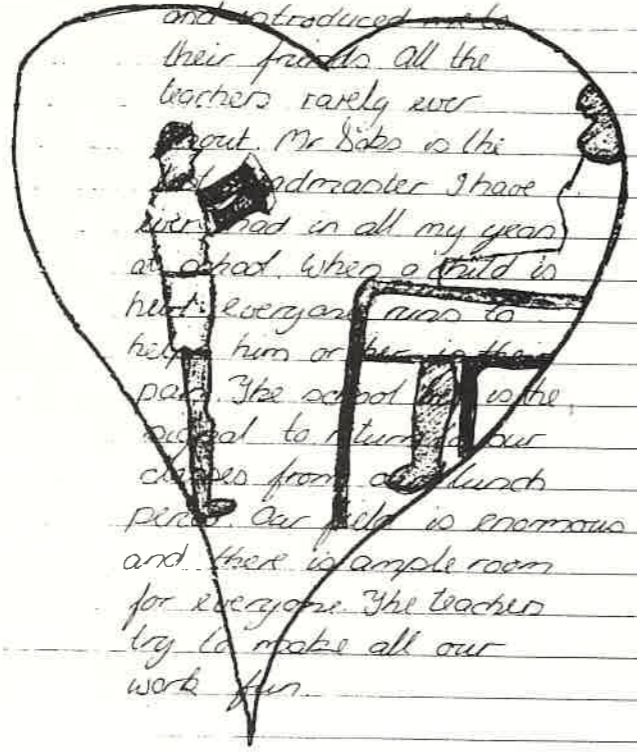 and introduced me to
their friends. All the
teachers rarely ever
shout. Mr Dibs is the
best headmaster I have
ever had in all my years
at school. When a child is
hurt everyone runs to
help him or her in their
pain. The school bell is the
signal to return to our
classes from our lunch
period. Our field is enormous
and there is ample room
for everyone. The teachers
try to make all our
work fun.